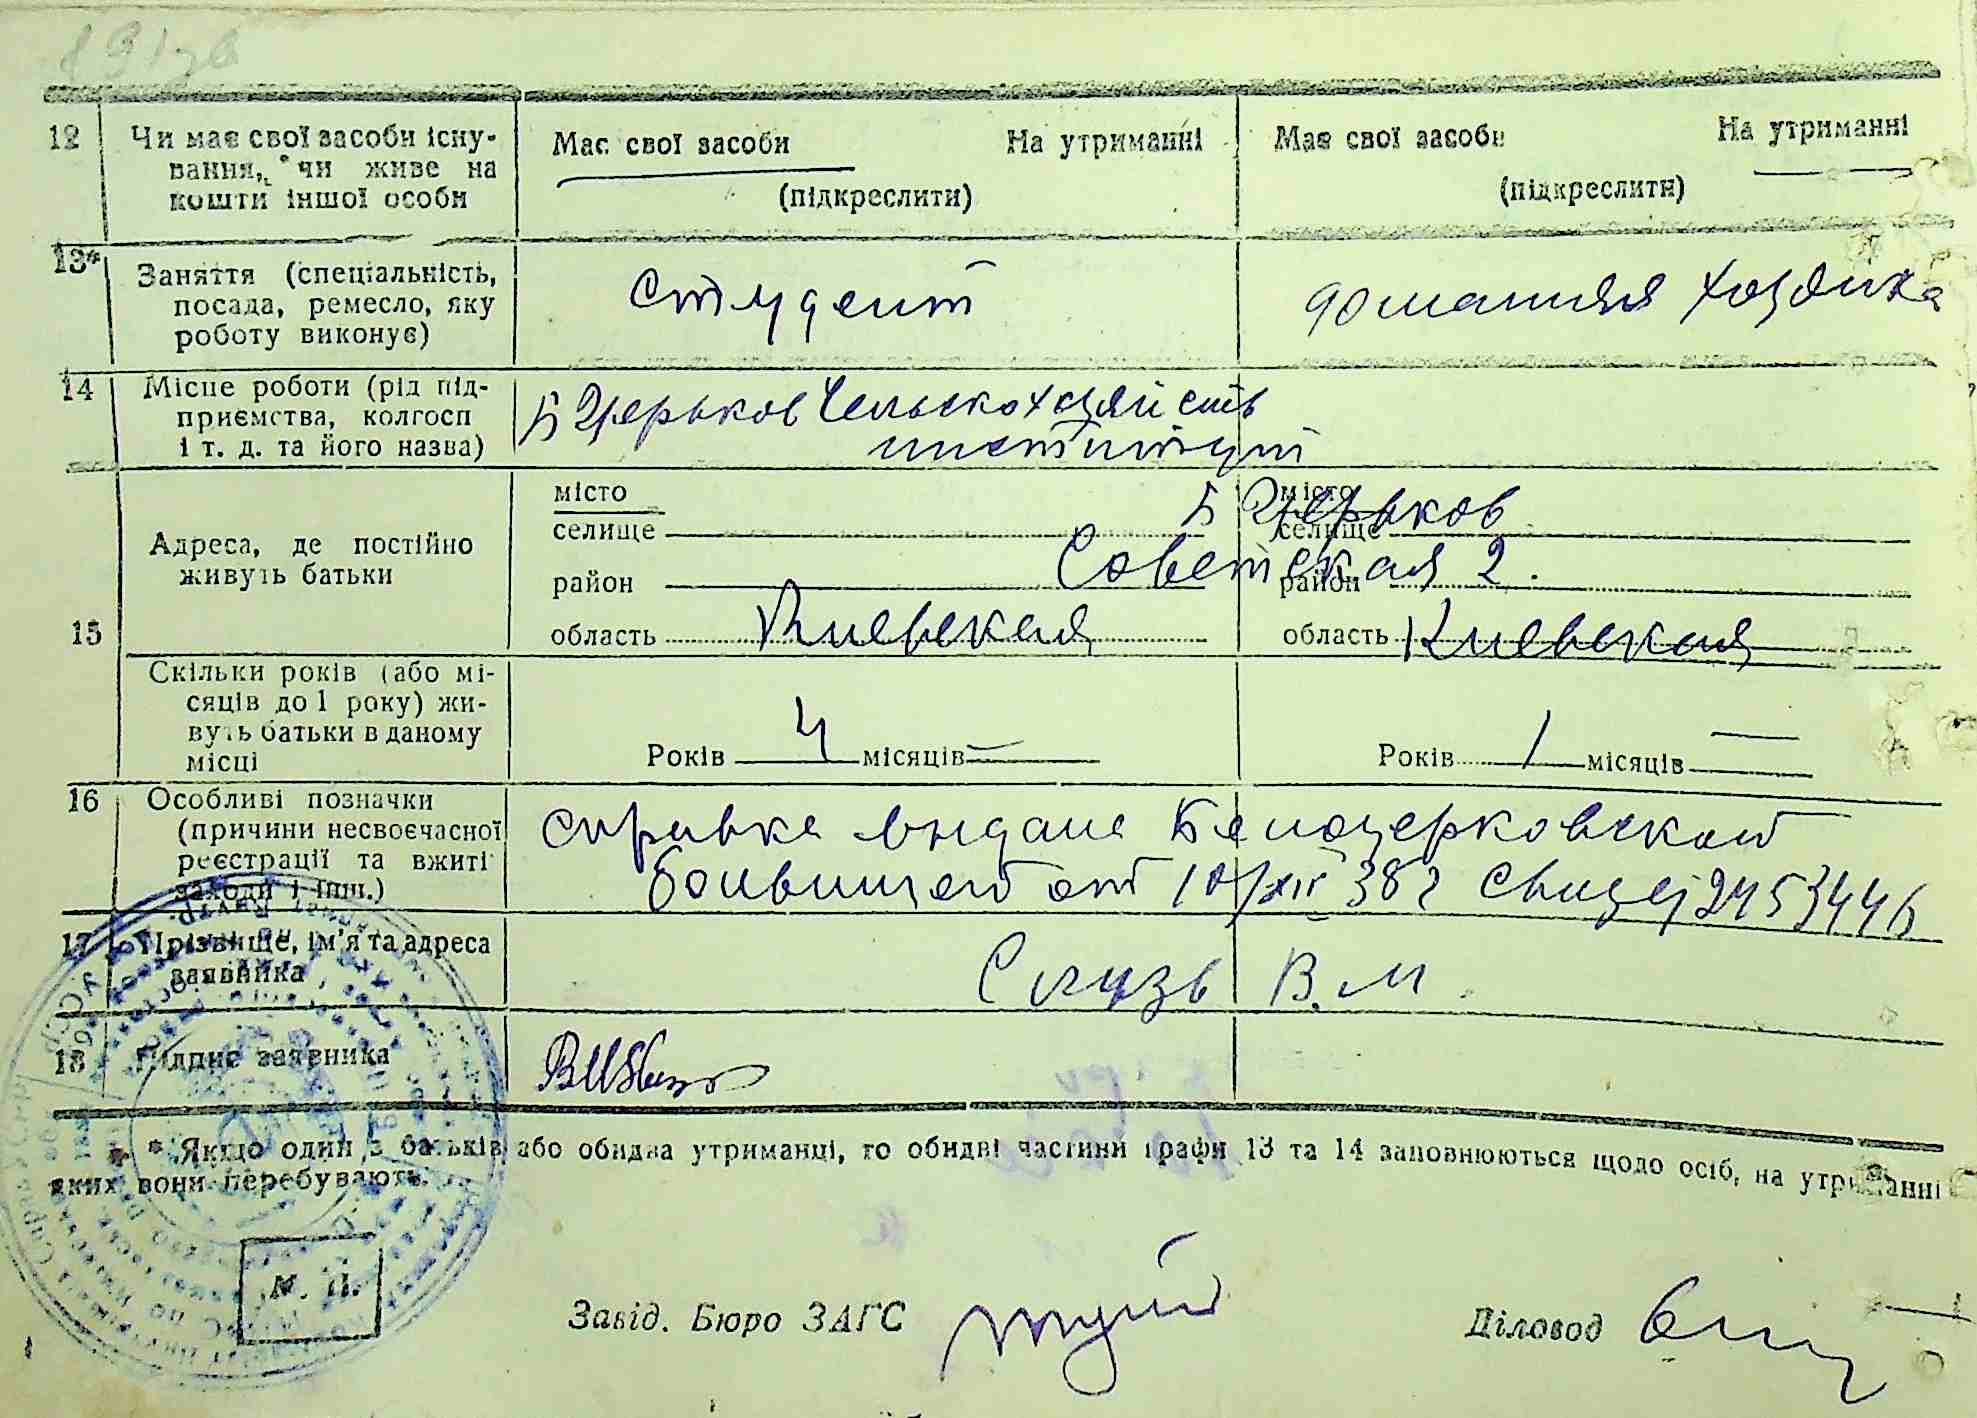 12 Чи має свої засоби існу-
вання, чи живе на
кошти іншої особи
Має свої засоби На утриманні
(підкреслити)
Має свої засоби На утриманні
(підкреслити)
13* Заняття (спеціальність,
посада, ремесло, яку
роботу виконує)
студент
домашняя хозяйка
14 Місце роботи (рід під-
приємства, колгосп
і т. д. та його назва)
Б Церьков Сельскохозяйств
институт
15
Адреса, де постійно
живуть батьки
місто
селище
район
область Киевская
місто
селище
район
область Киевская
Б Церьков
Советская 2.
Скільки років (або мі-
сяців до 1 року) жи-
вуть батьки в даному
місці
Років 4 місяців —
Років 1 місяців —
16 Особливі позначки
(причини несвоєчасної
реєстрації та вжиті
заходи і інш.)
справка выдана Белоцерковской
больницей от 10/XII 38 г 2453446
17 Прізвище, ім'я та адреса
заявника
В. М.
18 Підпис заявника
* Якщо один з батьків або обидва утриманці, то обидві частини графи 13 та 14 заповнюються щодо осіб, на утриманні
яких вони перебувають.
М. П.
Завід. Бюро ЗАГС
Діловод